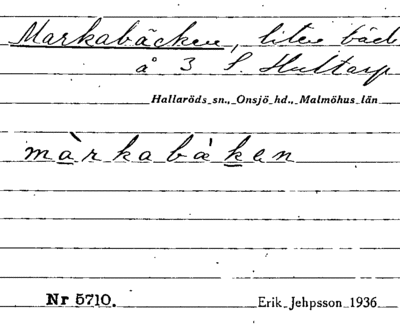 Markabäcken, liten bäck
å 3 S. Hultarp
Hallaröds sn., Onsjö hd., Malmöhus län
màrkabàken
Nr 5710.
Erik Jehpsson 1936